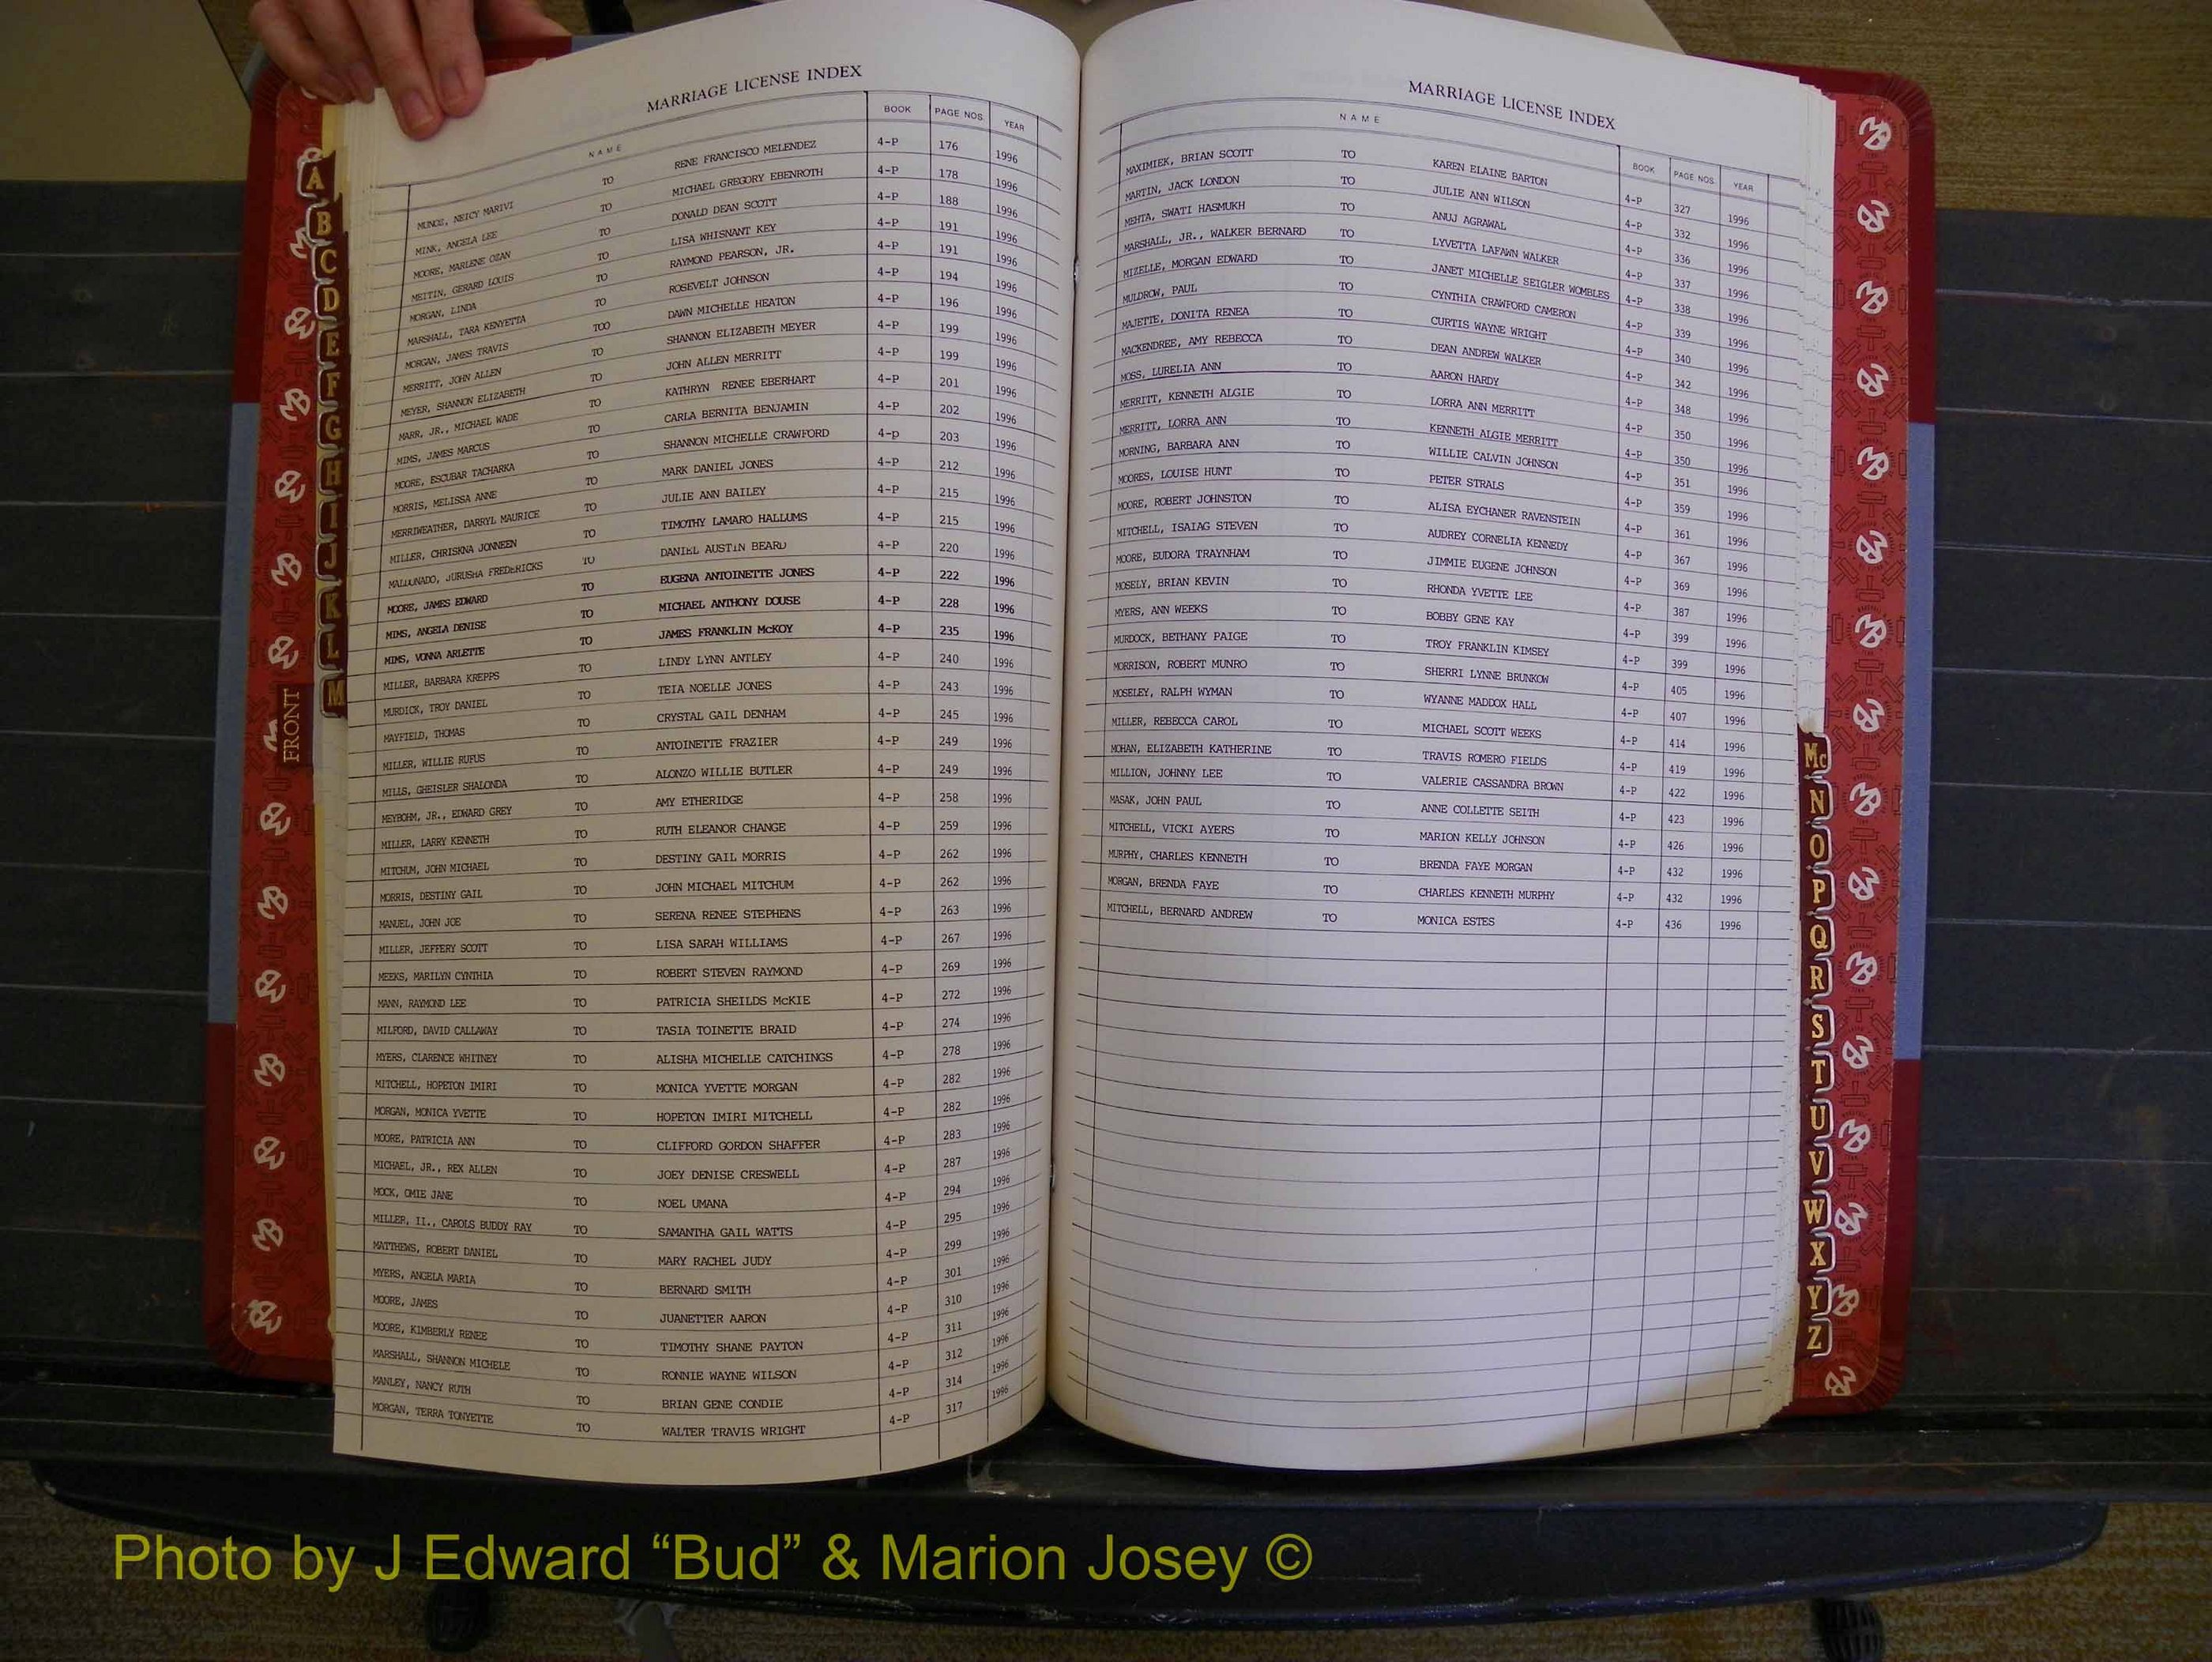 MARRIAGE LICENSE INDEX
NAME BOOK PAGE NOS. YEAR
MUNOZ, NEICY MARIVI TO RENE FRANCISCO MELENDEZ 4-P 176 1996
MINK, ANGELA LEE TO MICHAEL GREGORY EBENROTH 4-P 178 1996
MOORE, MARLENE OZAN TO DONALD DEAN SCOTT 4-P 188 1996
MEITIN, GERARD LOUIS TO LISA WHISNANT KEY 4-P 191 1996
MORGAN, LINDA TO RAYMOND PEARSON, JR. 4-P 191 1996
MARSHALL, TARA KENYETTA TO ROSEVELT JOHNSON 4-P 194 1996
MORGAN, JAMES TRAVIS TOO DAWN MICHELLE HEATON 4-P 196 1996
MERRITT, JOHN ALLEN TO SHANNON ELIZABETH MEYER 4-P 199 1996
MEYER, SHANNON ELIZABETH TO JOHN ALLEN MERRITT 4-P 199 1996
MARR, JR., MICHAEL WADE TO KATHRYN RENEE EBERHART 4-P 201 1996
MIMS, JAMES MARCUS TO CARLA BERNITA BENJAMIN 4-P 202 1996
MOORE, ESCUBAR TACHARKA TO SHANNON MICHELLE CRAWFORD 4-p 203 1996
MORRIS, MELISSA ANNE TO MARK DANIEL JONES 4-P 212 1996
MERRIWEATHER, DARRYL MAURICE TO JULIE ANN BAILEY 4-P 215 1996
MILLER, CHRISKNA JONNEEN TO TIMOTHY LAMARO HALLUMS 4-P 215 1996
MALDONADO, JURUSHA FREDERICKS TO DANIEL AUSTIN BEARD 4-P 220 1996
MOORE, JAMES EDWARD TO EUGENA ANTOINETTE JONES 4-P 222 1996
MIMS, ANGELA DENISE TO MICHAEL ANTHONY DOUSE 4-P 228 1996
MIMS, VONNA ARLETTE TO JAMES FRANKLIN McKOY 4-P 235 1996
MILLER, BARBARA KREPPS TO LINDY LYNN ANTLEY 4-P 240 1996
MURDICK, TROY DANIEL TO TEIA NOELLE JONES 4-P 243 1996
MAYFIELD, THOMAS TO CRYSTAL GAIL DENHAM 4-P 245 1996
MILLER, WILLIE RUFUS TO ANTOINETTE FRAZIER 4-P 249 1996
MILLS, GHEISLER SHALONDA TO ALONZO WILLIE BUTLER 4-P 249 1996
MEYBOHM, JR., EDWARD GREY TO AMY ETHERIDGE 4-P 258 1996
MILLER, LARRY KENNETH TO RUTH ELEANOR CHANGE 4-P 259 1996
MITCHUM, JOHN MICHAEL TO DESTINY GAIL MORRIS 4-P 262 1996
MORRIS, DESTINY GAIL TO JOHN MICHAEL MITCHUM 4-P 262 1996
MANUEL, JOHN JOE TO SERENA RENEE STEPHENS 4-P 263 1996
MILLER, JEFFERY SCOTT TO LISA SARAH WILLIAMS 4-P 267 1996
MEEKS, MARILYN CYNTHIA TO ROBERT STEVEN RAYMOND 4-P 269 1996
MANN, RAYMOND LEE TO PATRICIA SHEILDS McKIE 4-P 272 1996
MILFORD, DAVID CALLAWAY TO TASIA TOINETTE BRAID 4-P 274 1996
MYERS, CLARENCE WHITNEY TO ALISHA MICHELLE CATCHINGS 4-P 278 1996
MITCHELL, HOPETON IMIRI TO MONICA YVETTE MORGAN 4-P 282 1996
MORGAN, MONICA YVETTE TO HOPETON IMIRI MITCHELL 4-P 282 1996
MOORE, PATRICIA ANN TO CLIFFORD GORDON SHAFFER 4-P 283 1996
MICHAEL, JR., REX ALLEN TO JOEY DENISE CRESWELL 4-P 287 1996
MOCK, OMIE JANE TO NOEL UMANA 4-P 294 1996
MILLER, II., CAROLS BUDDY RAY TO SAMANTHA GAIL WATTS 4-P 295 1996
MATTHEWS, ROBERT DANIEL TO MARY RACHEL JUDY 4-P 299 1996
MYERS, ANGELA MARIA TO BERNARD SMITH 4-P 301 1996
MOORE, JAMES TO JUANETTER AARON 4-P 310 1996
MOORE, KIMBERLY RENEE TO TIMOTHY SHANE PAYTON 4-P 311 1996
MARSHALL, SHANNON MICHELE TO RONNIE WAYNE WILSON 4-P 312 1996
MANLEY, NANCY RUTH TO BRIAN GENE CONDIE 4-P 314 1996
MORGAN, TERRA TONYETTE TO WALTER TRAVIS WRIGHT 4-P 317 1996
MARRIAGE LICENSE INDEX
NAME BOOK PAGE NOS. YEAR
MAXIMIEK, BRIAN SCOTT TO KAREN ELAINE BARTON 4-P 327 1996
MARTIN, JACK LONDON TO JULIE ANN WILSON 4-P 332 1996
MEHTA, SWATI HASMUKH TO ANUJ AGRAWAL 4-P 336 1996
MARSHALL, JR., WALKER BERNARD TO LYVETTA LAFAWN WALKER 4-P 337 1996
MIZELLE, MORGAN EDWARD TO JANET MICHELLE SEIGLER WOMBLES 4-P 338 1996
MULDROW, PAUL TO CYNTHIA CRAWFORD CAMERON 4-P 339 1996
MAJETTE, DONITA RENEA TO CURTIS WAYNE WRIGHT 4-P 340 1996
MACKENDREE, AMY REBECCA TO DEAN ANDREW WALKER 4-P 342 1996
MOSS, LURELIA ANN TO AARON HARDY 4-P 348 1996
MERRITT, KENNETH ALGIE TO LORRA ANN MERRITT 4-P 350 1996
MERRITT, LORRA ANN TO KENNETH ALGIE MERRITT 4-P 350 1996
MORNING, BARBARA ANN TO WILLIE CALVIN JOHNSON 4-P 351 1996
MOORES, LOUISE HUNT TO PETER STRALS 4-P 359 1996
MOORE, ROBERT JOHNSTON TO ALISA EYCHANER RAVENSTEIN 4-P 361 1996
MITCHELL, ISAIAG STEVEN TO AUDREY CORNELIA KENNEDY 4-P 367 1996
MOORE, EUDORA TRAYNHAM TO JIMMIE EUGENE JOHNSON 4-P 369 1996
MOSELY, BRIAN KEVIN TO RHONDA YVETTE LEE 4-P 387 1996
MYERS, ANN WEEKS TO BOBBY GENE KAY 4-P 399 1996
MURDOCK, BETHANY PAIGE TO TROY FRANKLIN KIMSEY 4-P 399 1996
MORRISON, ROBERT MUNRO TO SHERRI LYNNE BRUNKOW 4-P 405 1996
MOSELEY, RALPH WYMAN TO WYANNE MADDOX HALL 4-P 407 1996
MILLER, REBECCA CAROL TO MICHAEL SCOTT WEEKS 4-P 414 1996
MOHAN, ELIZABETH KATHERINE TO TRAVIS ROMERO FIELDS 4-P 419 1996
MILLION, JOHNNY LEE TO VALERIE CASSANDRA BROWN 4-P 422 1996
MASAK, JOHN PAUL TO ANNE COLLETTE SEITH 4-P 423 1996
MITCHELL, VICKI AYERS TO MARION KELLY JOHNSON 4-P 426 1996
MURPHY, CHARLES KENNETH TO BRENDA FAYE MORGAN 4-P 432 1996
MORGAN, BRENDA FAYE TO CHARLES KENNETH MURPHY 4-P 432 1996
MITCHELL, BERNARD ANDREW TO MONICA ESTES 4-P 436 1996
A
B
C
D
E
F
G
H
I
J
K
L
M
FRONT
Mc
N
O
P
Q
R
S
T
U
V
W
X
Y
Z
Photo by J Edward “Bud” & Marion Josey ©